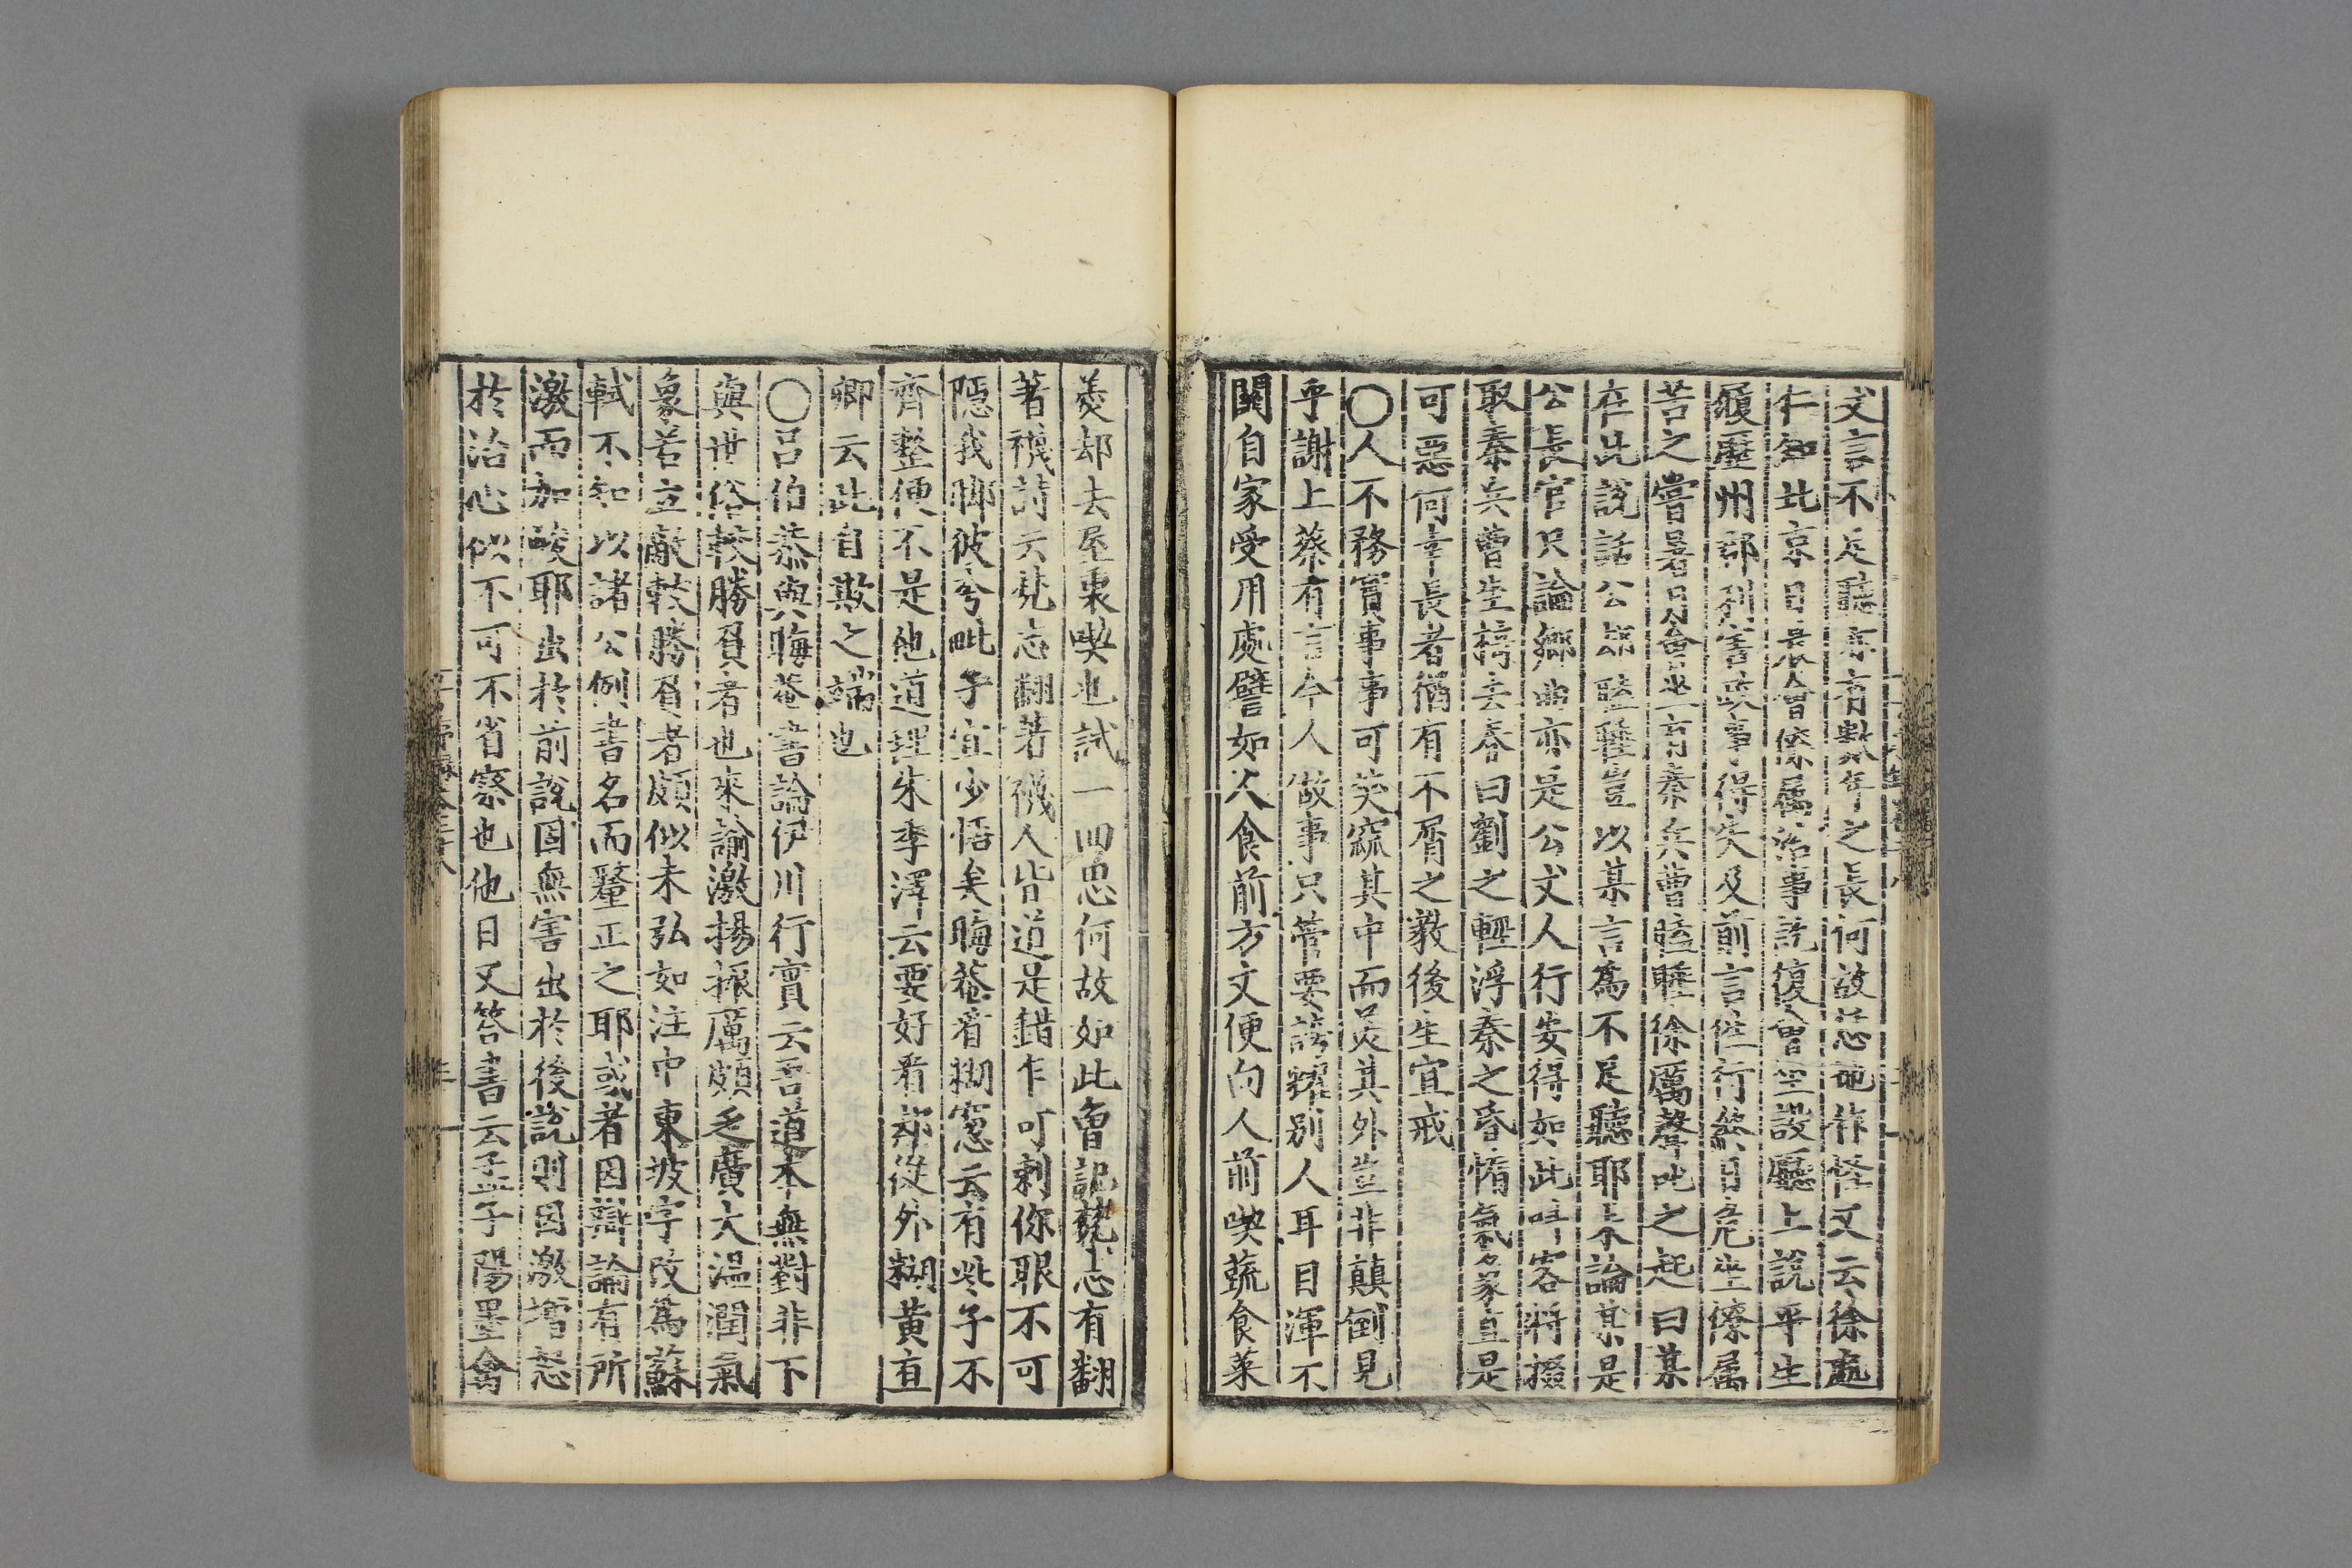 文言不足聽亦有數年之長何故恁地作怪又云徐處
仁知北京日長會僚属治事訖復會坐設廳上説平生
履歷州郡利害政事得失及前言徃行終日危坐僚属
苦之嘗暑月會坐有秦兵曹瞌睡徐厲聲叱之起曰某
在此説話公却瞌睡豈以某言爲不足聽耶未論某是
公長官只論鄉曲亦是公丈人行安得如此叫客將掇
取秦兵曹坐椅去吞曰劉之輕浮秦之昏惰氣象直是
可惡何幸長者猶有不屑之敎後生宜戒
○人不務實事事可笑窳其中而炅其外豈非顛倒見
乎謝上蔡有言今人做事只管要誇耀别人耳目渾不
關自家受用處譬如人食前方丈便向人前喫蔬食菜
羹却去屋裏喫也試一回思何故如此曾記梵志有翻
著襪詩云梵志翻著襪人皆道是錯乍可刺你眼不可
隱我脚彼兮毗子宜少悟矣晦菴看糊窓云有些子不
齊整便不是他道理朱季澤云要好看却從外糊黄直
卿云此自欺之端也
○吕伯恭與晦菴書論伊川行實云吾道本無對非下
與世俗較勝負者也來諭激揚振厲頗乏廣大温潤氣
象若立敵較勝負者頗似未弘如注中東坡字改爲蘇
軾不知以諸公例書名而釐正之耶或者因辯論有所
激而加峻耶出於前説固無害出於後説則因激增怒
於治心似不可不省察也他日又答書云孟子陽墨禽